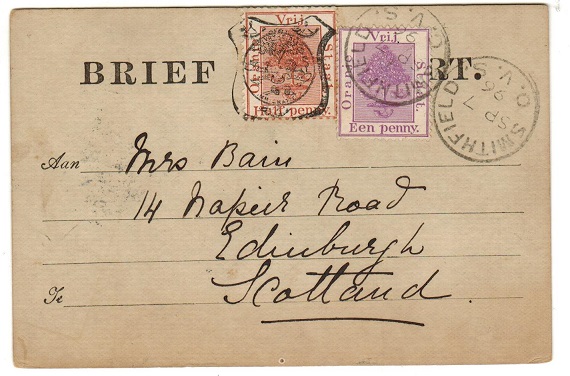 BRIEF
RT.
Vrij
Oranje
Staat
Half penny.
Vrij
Oranje
Staat
Een penny.
SMITHFIELD O.V.S.
SP 7
96
SMITHFIELD. O.V.S.
SP 7
96
Aan Mrs Bain
14 Napier Road
Edinburgh
Te Scotland.